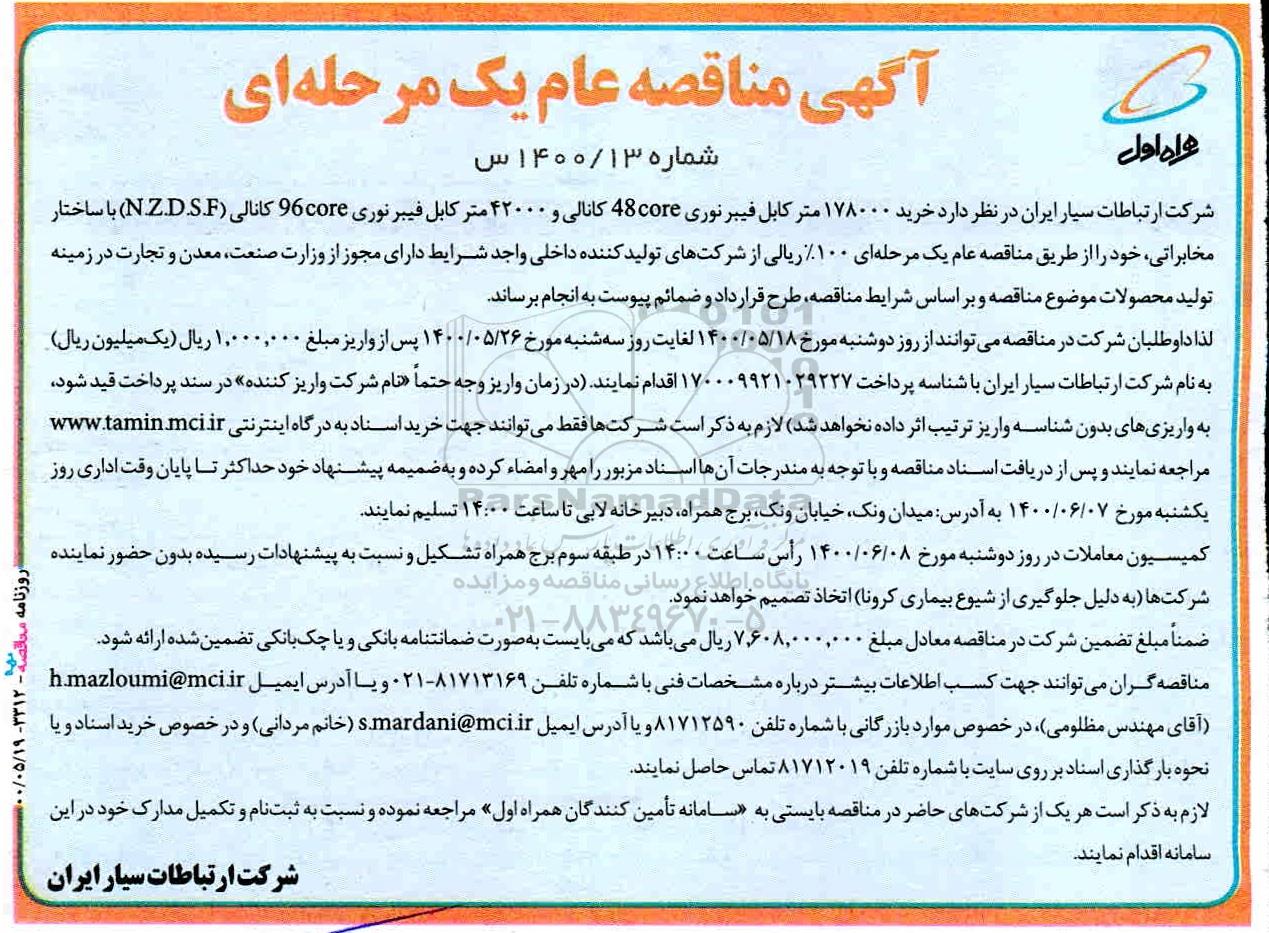 آگهی مناقصه عام یک مرحله‌ای
همراه اول
شماره ۱۴۰۰/۱۳ س
شرکت ارتباطات سیار ایران در نظر دارد خرید ۱۷۸۰۰۰ متر کابل فیبر نوری 48core کانالی و ۴۲۰۰۰ متر کابل فیبر نوری 96core کانالی (N.Z.D.S.F) با ساختار
مخابراتی، خود را از طریق مناقصه عام یک مرحله‌ای ۱۰۰٪ ریالی از شرکت‌های تولیدکننده داخلی واجد شرایط دارای مجوز از وزارت صنعت، معدن و تجارت در زمینه
تولید محصولات موضوع مناقصه و بر اساس شرایط مناقصه، طرح قرارداد و ضمائم پیوست به انجام برساند.
لذا داوطلبان شرکت در مناقصه می‌توانند از روز دوشنبه مورخ ۱۴۰۰/۰۵/۱۸ لغایت روز سه‌شنبه مورخ ۱۴۰۰/۰۵/۲۶ پس از واریز مبلغ ۱,۰۰۰,۰۰۰ ریال (یک‌میلیون ریال)
به نام شرکت ارتباطات سیار ایران با شناسه پرداخت ۱۷۰۰۰۹۹۲۱۰۲۹۲۲۷ اقدام نمایند. (در زمان واریز وجه حتماً «نام شرکت واریز کننده» در سند پرداخت قید شود،
به واریزی‌های بدون شناسه واریز ترتیب اثر داده نخواهد شد) لازم به ذکر است شرکت‌ها فقط می‌توانند جهت خرید اسناد به درگاه اینترنتی www.tamin.mci.ir
مراجعه نمایند و پس از دریافت اسناد مناقصه و با توجه به مندرجات آن‌ها اسناد مزبور را مهر و امضاء کرده و به‌ضمیمه پیشنهاد خود حداکثر تا پایان وقت اداری روز
یکشنبه مورخ ۱۴۰۰/۰۶/۰۷ به آدرس: میدان ونک، خیابان ونک، برج همراه، دبیرخانه لابی تا ساعت ۱۴:۰۰ تسلیم نمایند.
کمیسیون معاملات در روز دوشنبه مورخ ۱۴۰۰/۰۶/۰۸ رأس ساعت ۱۴:۰۰ در طبقه سوم برج همراه تشکیل و نسبت به پیشنهادات رسیده بدون حضور نماینده
شرکت‌ها (به دلیل جلوگیری از شیوع بیماری کرونا) اتخاذ تصمیم خواهد نمود.
ضمناً مبلغ تضمین شرکت در مناقصه معادل مبلغ ۷,۶۰۸,۰۰۰,۰۰۰ ریال می‌باشد که می‌بایست به‌صورت ضمانتنامه بانکی و یا چک‌بانکی تضمین‌شده ارائه شود.
مناقصه‌گران می‌توانند جهت کسب اطلاعات بیشتر درباره مشخصات فنی با شماره تلفن ۸۱۷۱۳۱۶۹-۰۲۱ و یا آدرس ایمیل h.mazloumi@mci.ir
(آقای مهندس مظلومی)، در خصوص موارد بازرگانی با شماره تلفن ۸۱۷۱۲۵۹۰ و یا آدرس ایمیل s.mardani@mci.ir (خانم مردانی) و در خصوص خرید اسناد و یا
نحوه بارگذاری اسناد بر روی سایت با شماره تلفن ۸۱۷۱۲۰۱۹ تماس حاصل نمایند.
لازم به ذکر است هر یک از شرکت‌های حاضر در مناقصه بایستی به «سامانه تأمین کنندگان همراه اول» مراجعه نموده و نسبت به ثبت‌نام و تکمیل مدارک خود در این
سامانه اقدام نمایند.
شرکت ارتباطات سیار ایران
ParsNamadData
پایگاه اطلاع رسانی مناقصه و مزایده
۰۲۱-۸۸۳۴۹۶۷۰-۵
روزنامه مناقصه - ۳۳۱۲ - ۰۰/۰۵/۱۹